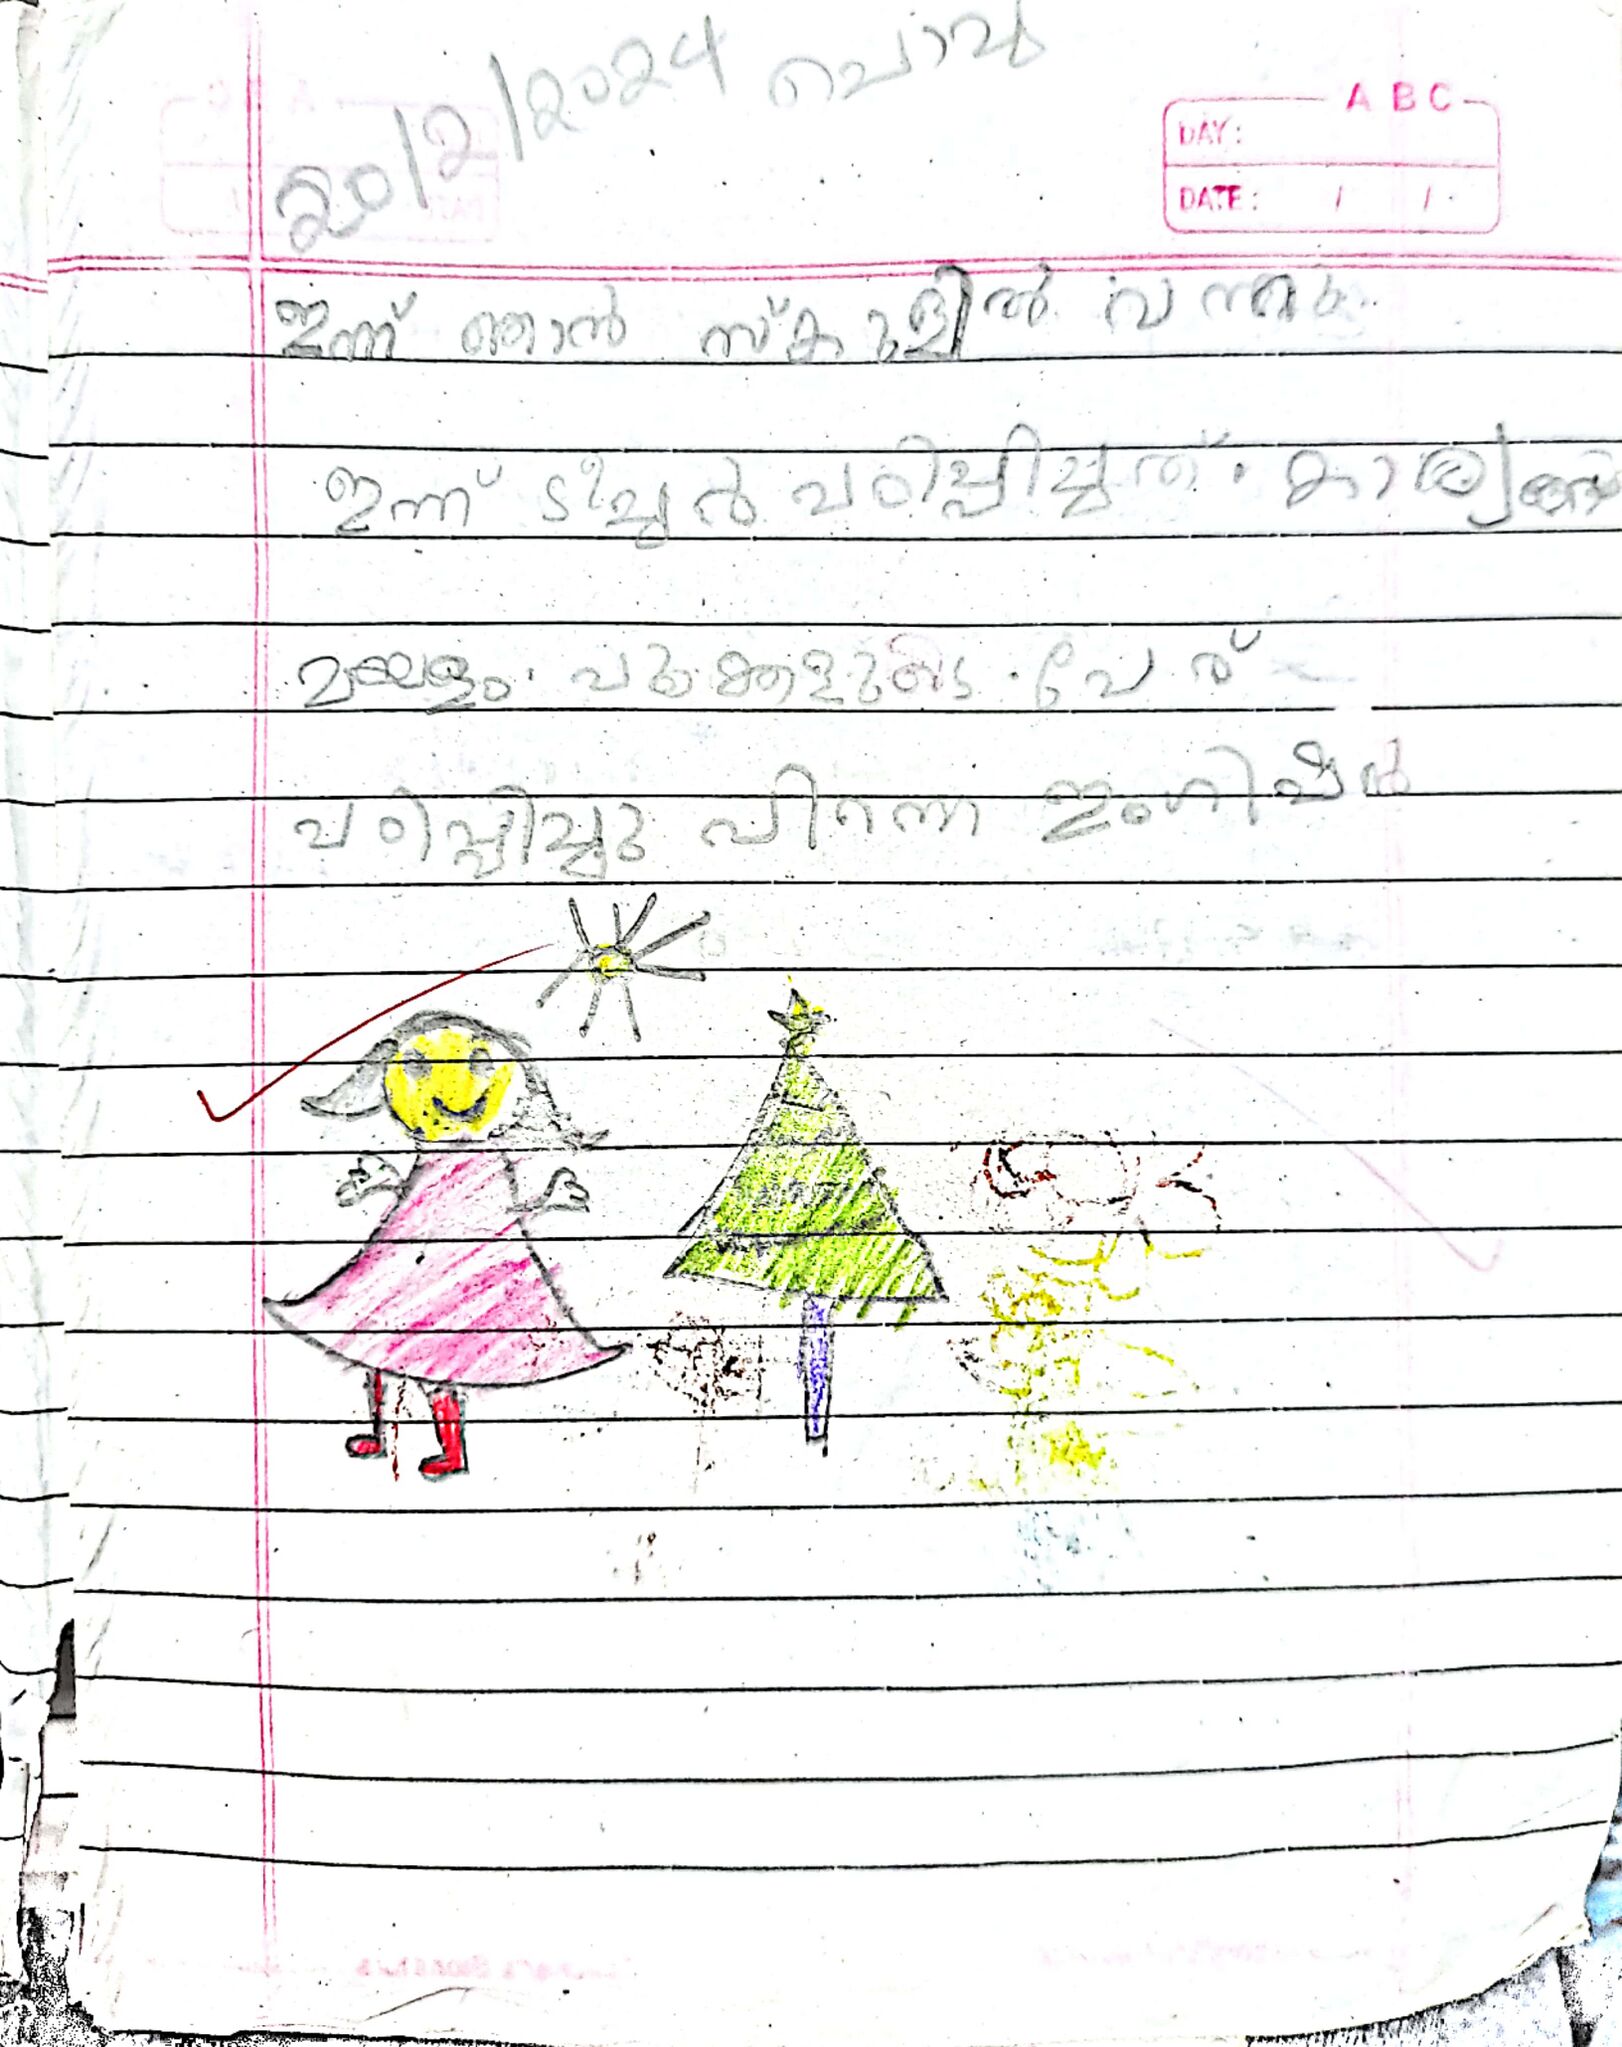 20/2/2024 ചൊവ്വ
A B C
DAY:
DATE: / /
ഇന്ന് ഞാൻ സ്കുളിൽ വന്നു
ഇന്ന് ടീച്ചർ പഠിപ്പിച്ചത്. കാര്യങ്ങൾ
മലയളം പൂക്കളുടെ പേര്
പഠിപ്പിച്ചു പിന്നെ ഇംഗിഷിൽ